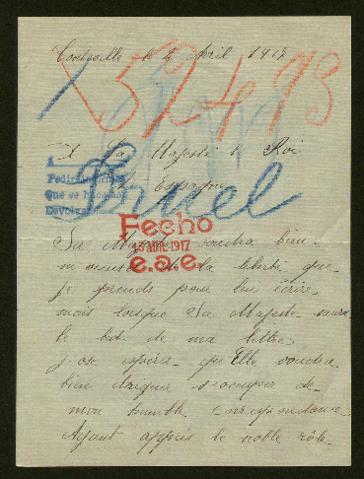 Conteville le 2 Avril 1917
52493
A Sa Majesté le Roi
d'Espagne
Pedir
Que se
Devolver
Fecho
13 ABR. 1917
e.a.e.
Sa Majesté voudra bien
la liberté que
je prends pour lui écrire
mais lorsque Sa Majesté saura
le but de ma lettre
j'ose espérer qu'Elle voudra
bien daigner s'occuper de
mon humble correspondance
Ayant appris le noble rôle